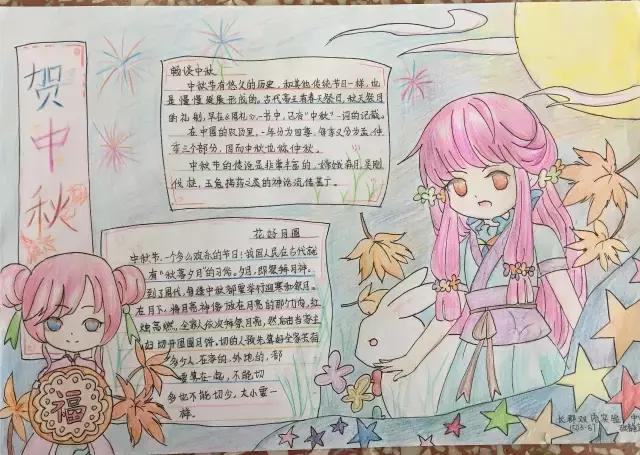 贺中秋
畅谈中秋
中秋节有悠久的历史，和其他传统节日一样，也
是慢慢发展形成的。古代帝王有春天祭日，秋天祭月
的礼制，早在《周礼》一书中，已有“中秋”一词的记载。
在中国的农历里，一年分为四季，每季又分为孟、仲、
季三个部分，因而中秋也称仲秋。
中秋节的传说是非常丰富的，嫦娥奔月，吴刚
伐桂，玉兔捣药之类的神话流传甚广。
花好月圆
中秋节，一个多么欢乐的节日！我国人民在古代就
有“秋暮夕月”的习俗。夕月，即祭拜月神。
到了周代，每逢中秋都要举行迎寒和祭月。
在月下，将月亮神像放在月亮的那个方向，红
烛高燃，全家人依次拜祭月亮，然后由当家主
妇切开团圆月饼。切的人预先算好全家共有
多少人，在家的，外地的，都
要算在一起，不能切
多也不能切少，大小要一
样。
福
长郡双语实验中